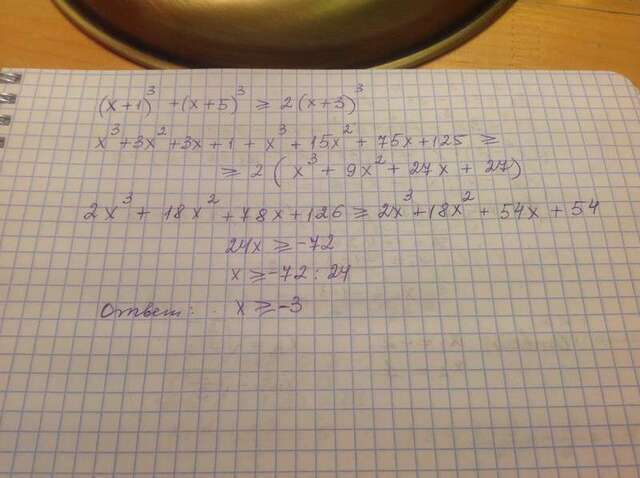 (x+1)³ + (x+5)³ ≥ 2(x+3)³
x³+3x²+3x+1+x³+15x²+75x+125 ≥
≥ 2(x³+9x²+27x+27)
2x³+18x²+78x+126 ≥ 2x³+18x²+54x+54
24x ≥ -72
x ≥ -72 : 24
Ответ: x ≥ -3